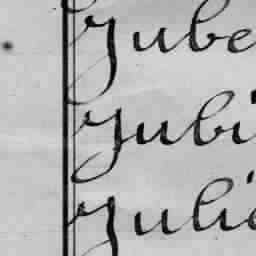 Jube
Jubi
Julie